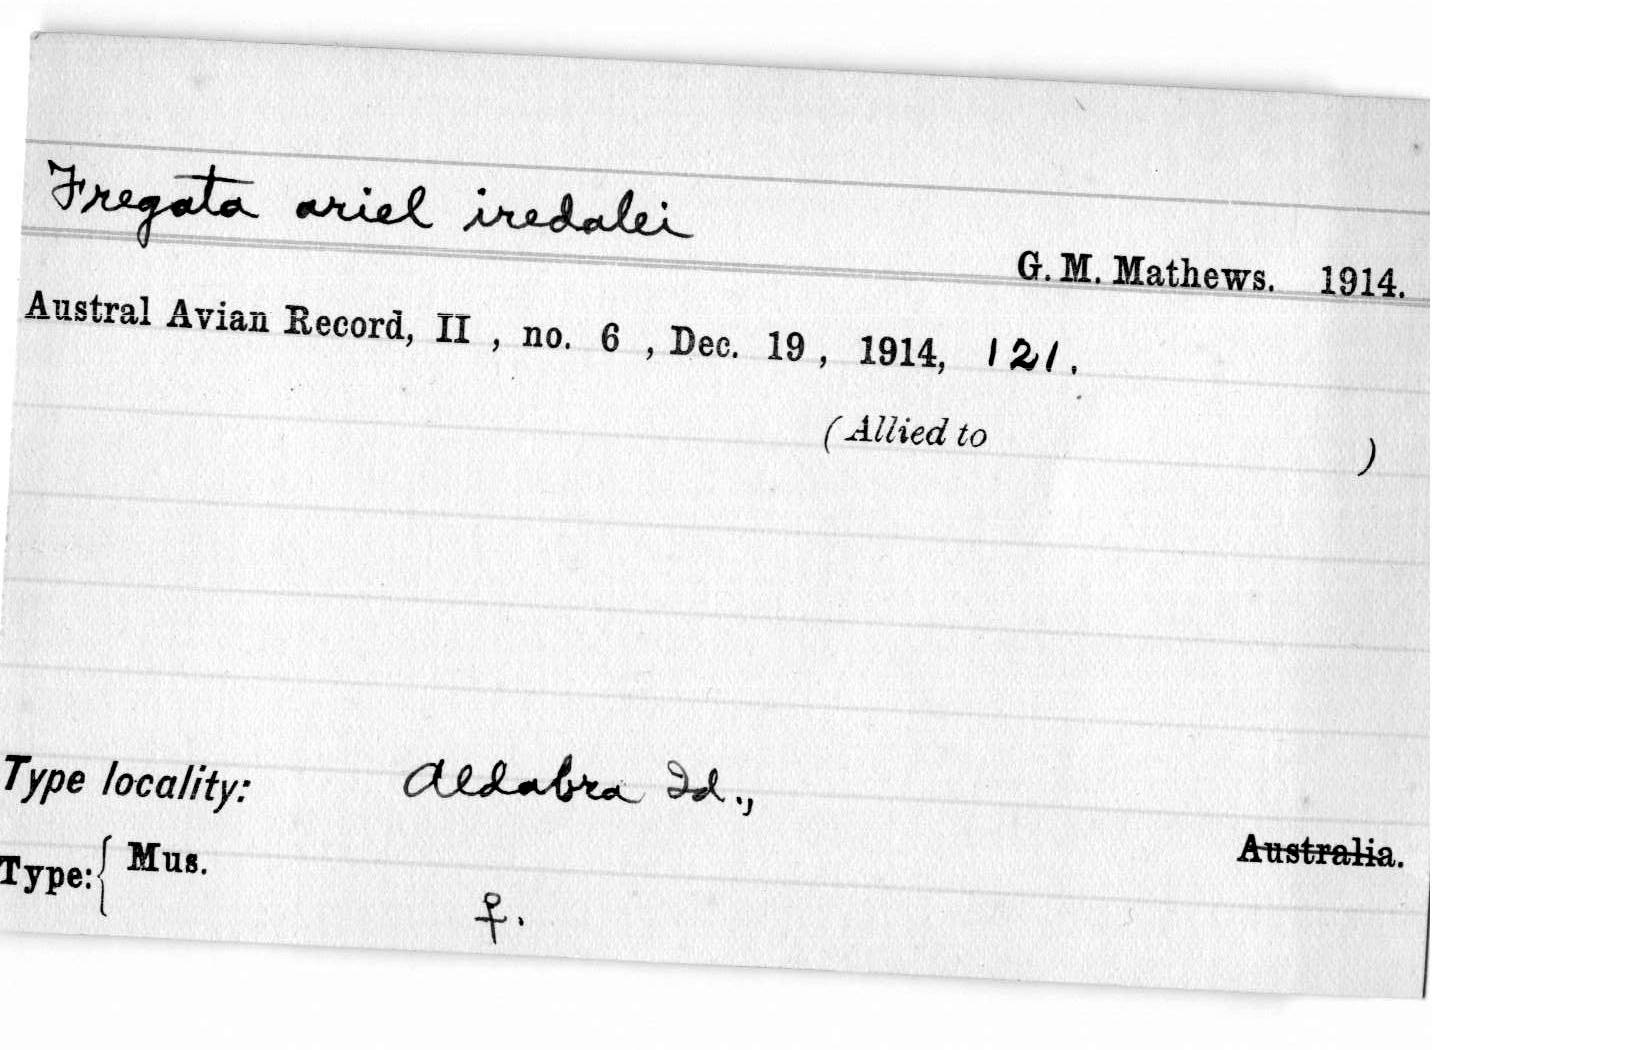 Fregata ariel iredalei
G. M. Mathews. 1914.
Austral Avian Record, II , no. 6 , Dec. 19 , 1914, 121.
(Allied to )
Type locality: Aldabra Id.,
Australia.
Type: { Mus.
♀.